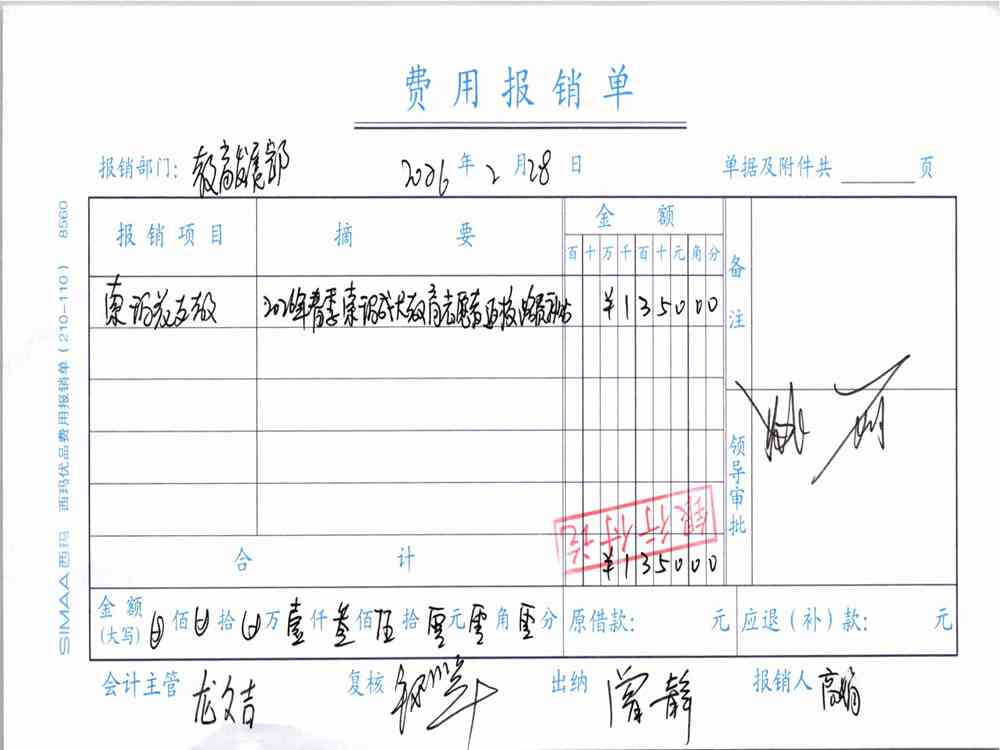 费用报销单
报销部门: 教育发展部 2026年2月28日 单据及附件共 页
报销项目 摘要 金额 备注
百十万千百十元角分
2026年春季 ¥135000
领导审批
银行付讫
合计 ¥135000
金额(大写) 佰 拾 万壹仟叁佰伍拾零元零角零分 原借款: 元 应退(补)款: 元
会计主管 龙文吉 复核 出纳 曾静 报销人 高娟
SIMAA西玛 西玛优品费用报销单(210-110) 8560